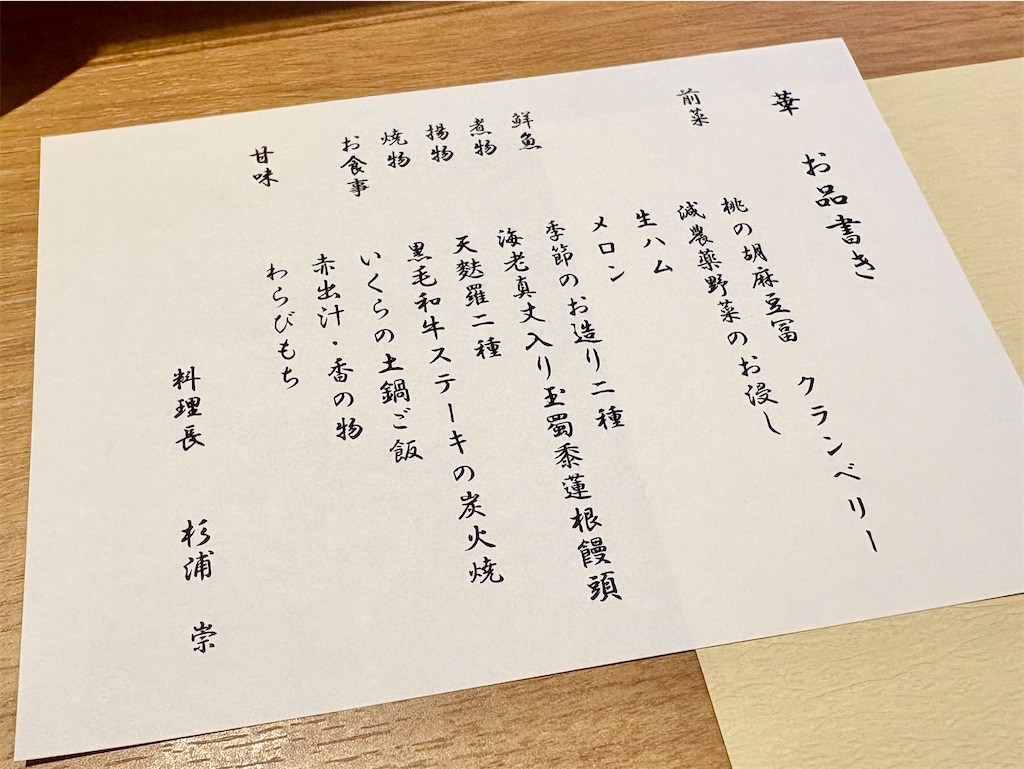 華 お品書き
前菜 桃の胡麻豆冨 クランベリー
減農薬野菜のお浸し
生ハム
メロン
鮮魚 季節のお造り二種
煮物 海老真丈入り玉蜀黍蓮根饅頭
揚物 天麩羅二種
焼物 黒毛和牛ステーキの炭火焼
お食事 いくらの土鍋ご飯
赤出汁・香の物
甘味 わらびもち
料理長 杉浦 崇